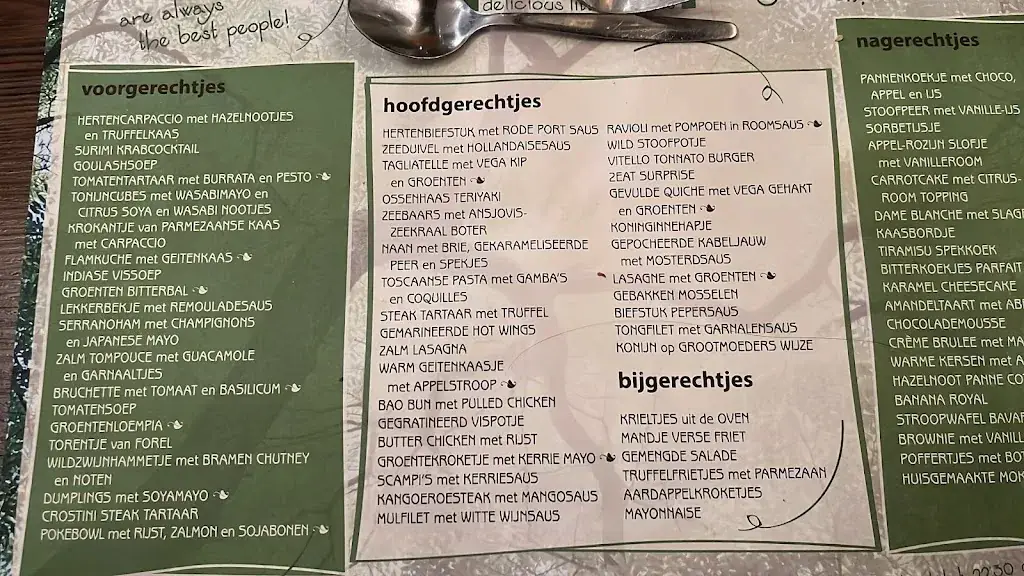 are always
the best people!
delicious
voorgerechtjes
HERTENCARPACCIO met HAZELNOOTJES
en TRUFFELKAAS
SURIMI KRABCOCKTAIL
GOULASHSOEP
TOMATENTARTAAR met BURRATA en PESTO
TONIJNCUBES met WASABIMAYO en
CITRUS SOYA en WASABI NOOTJES
KROKANTJE van PARMEZAANSE KAAS
met CARPACCIO
FLAMKUCHE met GEITENKAAS
INDIASE VISSOEP
GROENTEN BITTERBAL
LEKKERBEKJE met REMOULADESAUS
SERRANOHAM met CHAMPIGNONS
en JAPANESE MAYO
ZALM TOMPOUCE met GUACAMOLE
en GARNAALTJES
BRUCHETTE met TOMAAT en BASILICUM
TOMATENSOEP
GROENTENLOEMPIA
TORENTJE van FOREL
WILDZWIJNHAMMETJE met BRAMEN CHUTNEY
en NOTEN
DUMPLINGS met SOYAMAYO
CROSTINI STEAK TARTAAR
POKEBOWL met RIJST, ZALMON en SOJABONEN
hoofdgerechtjes
HERTENBIEFSTUK met RODE PORT SAUS
ZEEDUIVEL met HOLLANDAISESAUS
TAGLIATELLE met VEGA KIP
en GROENTEN
OSSENHAAS TERIYAKI
ZEEBAARS met ANSJOVIS-
ZEEKRAAL BOTER
NAAN met BRIE, GEKARAMELISEERDE
PEER en SPEKJES
TOSCAANSE PASTA met GAMBA'S
en COQUILLES
STEAK TARTAAR met TRUFFEL
GEMARINEERDE HOT WINGS
ZALM LASAGNA
WARM GEITENKAASJE
met APPELSTROOP
BAO BUN met PULLED CHICKEN
GEGRATINEERD VISPOTJE
BUTTER CHICKEN met RIJST
GROENTEKROKETJE met KERRIE MAYO
SCAMPI'S met KERRIESAUS
KANGOEROESTEAK met MANGOSAUS
MULFILET met WITTE WIJNSAUS
RAVIOLI met POMPOEN in ROOMSAUS
WILD STOOFPOTJE
VITELLO TONNATO BURGER
2EAT SURPRISE
GEVULDE QUICHE met VEGA GEHAKT
en GROENTEN
KONINGINNEHAPJE
GEPOCHEERDE KABELJAUW
met MOSTERDSAUS
LASAGNE met GROENTEN
GEBAKKEN MOSSELEN
BIEFSTUK PEPERSAUS
TONGFILET met GARNALENSAUS
KONIJN op GROOTMOEDERS WIJZE
bijgerechtjes
KRIELTJES uit de OVEN
MANDJE VERSE FRIET
GEMENGDE SALADE
TRUFFELFRIETJES met PARMEZAAN
AARDAPPELKROKETJES
MAYONNAISE
nagerechtjes
PANNENKOEKJE met CHOCO,
APPEL en IJS
STOOFPEER met VANILLE-IJS
SORBETIJSJE
APPEL-ROZIJN SLOFJE
met VANILLEROOM
CARROTCAKE met CITRUS-
ROOM TOPPING
DAME BLANCHE met SLAG
KAASBORDJE
TIRAMISU SPEKKOEK
BITTERKOEKJES PARFAIT
KARAMEL CHEESECAKE
AMANDELTAART met AB
CHOCOLADEMOUSSE
CRÈME BRULEE met MA
WARME KERSEN met A
HAZELNOOT PANNE CO
BANANA ROYAL
STROOPWAFEL BAVAR
BROWNIE met VANILL
POFFERTJES met BOT
HUISGEMAAKTE MON
22:30